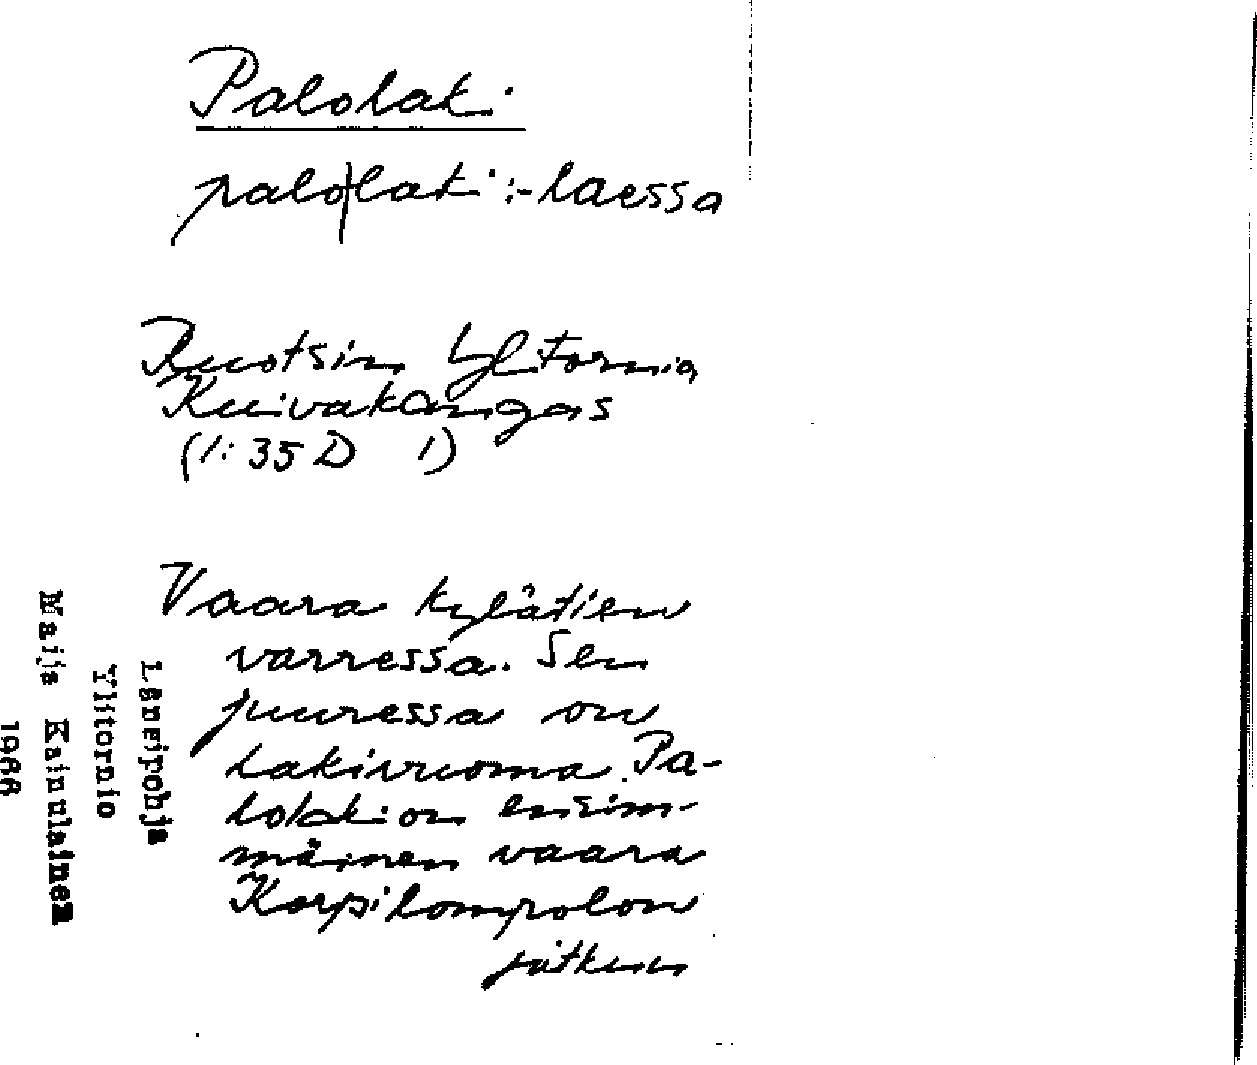 Palolaki
palo|laki :-laessa
Ruotsin Ylitornio
Kuivakangas
(1: 35 D 1)
Vaara kylätien
varressa. Sen
juuressa on
Lakivuoma. Pa-
lolaki on ensim-
mäinen vaara
Korpilompolon
jatkuu
Länsipohja
Ylitornio
Maija Kainulainen
1966